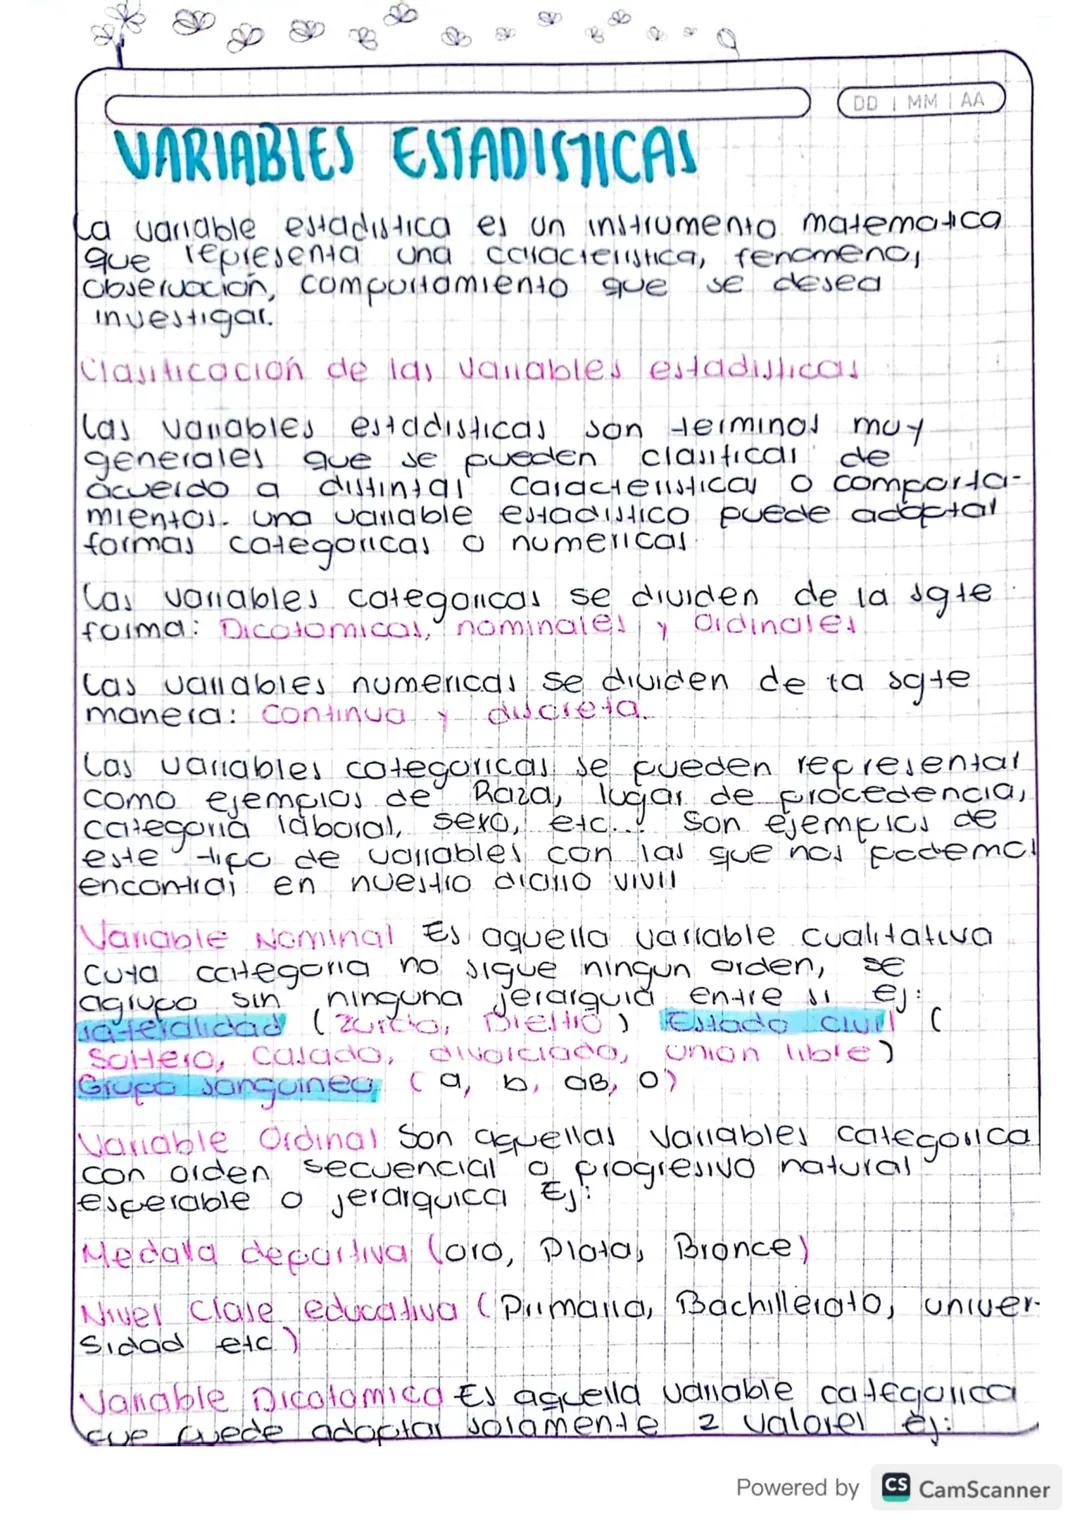 DD | MM | AA
VARIABLES ESTADISTICAS
La variable estadistica es un instrumento matematica
que representa una caracteristica, fenomeno,
observación, comportamiento que se desea
investigar.
Clasificación de las variables estadisticas
Las variables estadisticas son terminos muy
generales que se pueden clasificar de
acuerdo a distintas caracteristicas o comporta-
mientos. una variable estadistico puede adoptar
formas categoricas o numericas.
Las variables categoricas se dividen de la sgte
forma: Dicotomicas, nominales y ordinales
Las variables numericas se dividen de la sgte
manera: Continua y discreta.
Las variables categoricas se pueden representar
como ejemplos de Raza, lugar de procedencia,
categoria laboral, sexo, etc... Son ejemplos de
este tipo de variables con las que nos podemos
encontrar en nuestro diario vivir
Variable Nominal Es aquella variable cualitativa
cuya categoria no sigue ningun orden, se
agrupa sin ninguna jerarquia entre si ej:
lateralidad (Zurdo, Diestro) Estado civil (
Soltero, casado, divorciado, union libre)
Grupo sanguineo (a, b, aB, o)
Variable Ordinal Son aquellas variables categorica
con orden secuencial o progresivo natural
esperable o jerarquica Ej:
Medalla deportiva (oro, Plata, Bronce)
Nivel Clase educativa (Primaria, Bachillerato, univer-
sidad etc)
Variable Dicotomica Es aquella variable categorica
que puede adoptar solamente 2 valores ej:
Powered by CS CamScanner